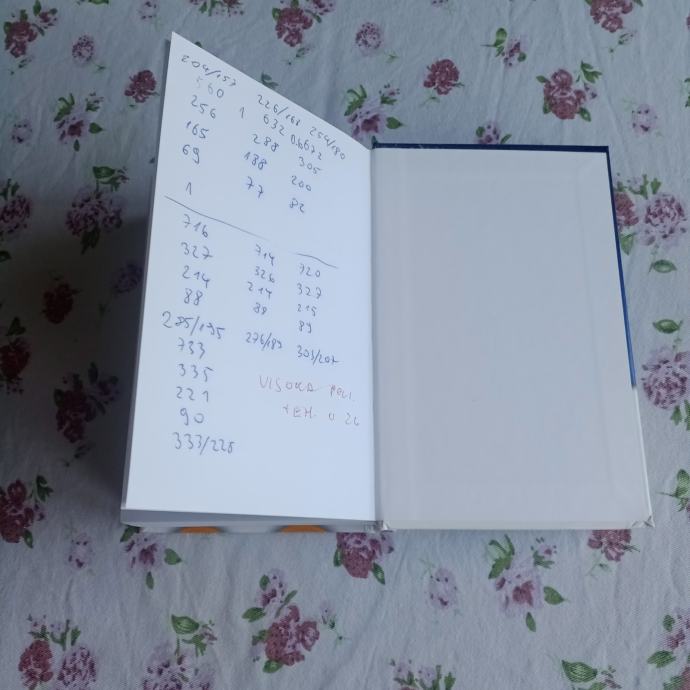 204/157
560 226/168 254/180
256 1 632 672
165 288 305
69 188 200
1 77 82
716 714 720
327 326 327
214 214 215
88 88 89
285/195 276/189 303/207
733
335 VISOKA
221 U 26
90
333/225